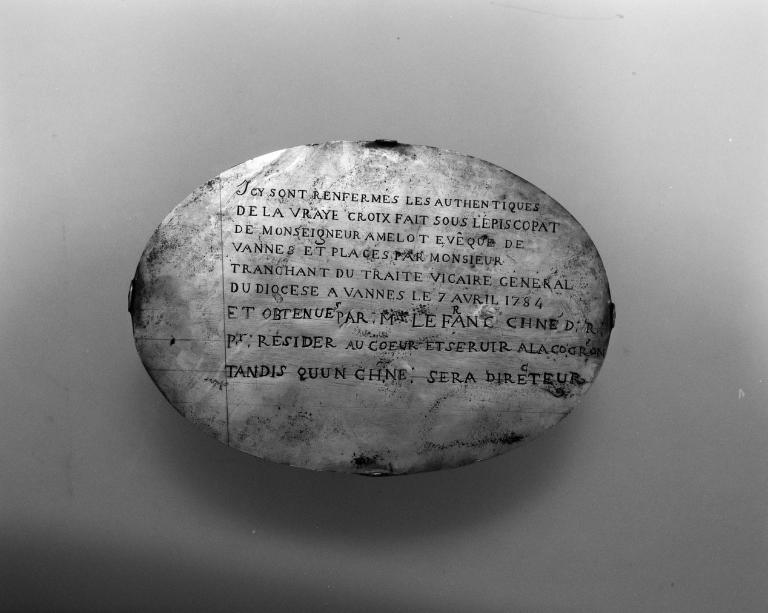 JCY SONT RENFERMES LES AUTHENTIQUES
DE LA VRAYE CROIX FAIT SOUS LÉPISCOPAT
DE MONSEIGNEUR AMELOT EVÊQUE DE
VANNES ET PLACES PAR MONSIEUR
TRANCHANT DU TRAITE VICAIRE GENERAL
DU DIOCESE A VANNES LE 7 AVRIL 1784
ET OBTENUES PAR LE FRANC CHNE D. R.
PT. RÉSIDER AU COEUR ET SERUIR A LA COGRON
TANDIS QUUN CHNE. SERA DIRECTEUR